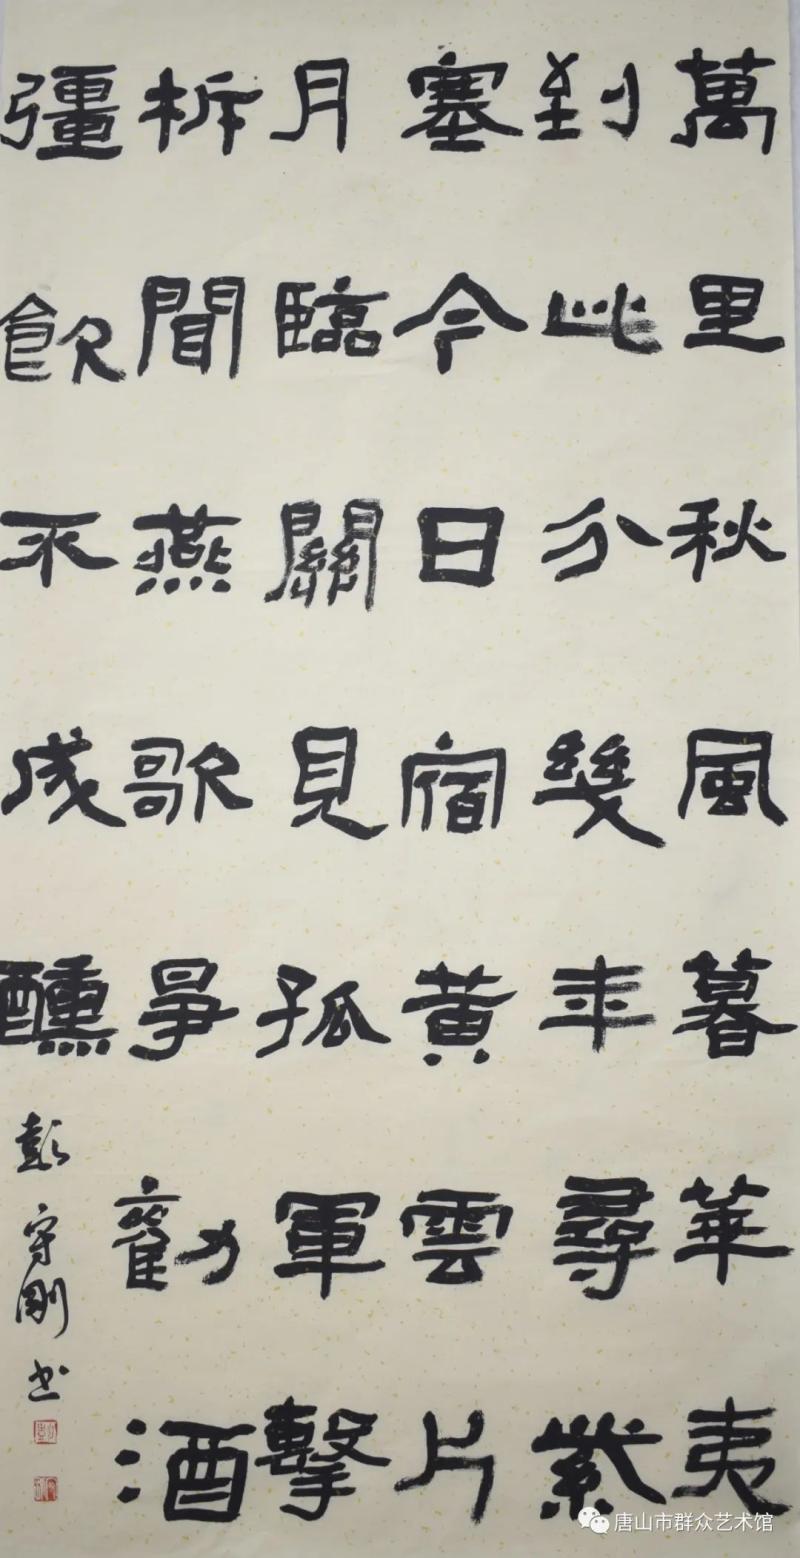 萬里秋風暮華夷
到此分幾年尋紫
塞今日宿黄雲片
月臨關見孤軍擊
柝聞燕歌爭勸酒
彊飲不成醺
彭守剛书
唐山市群众艺术馆